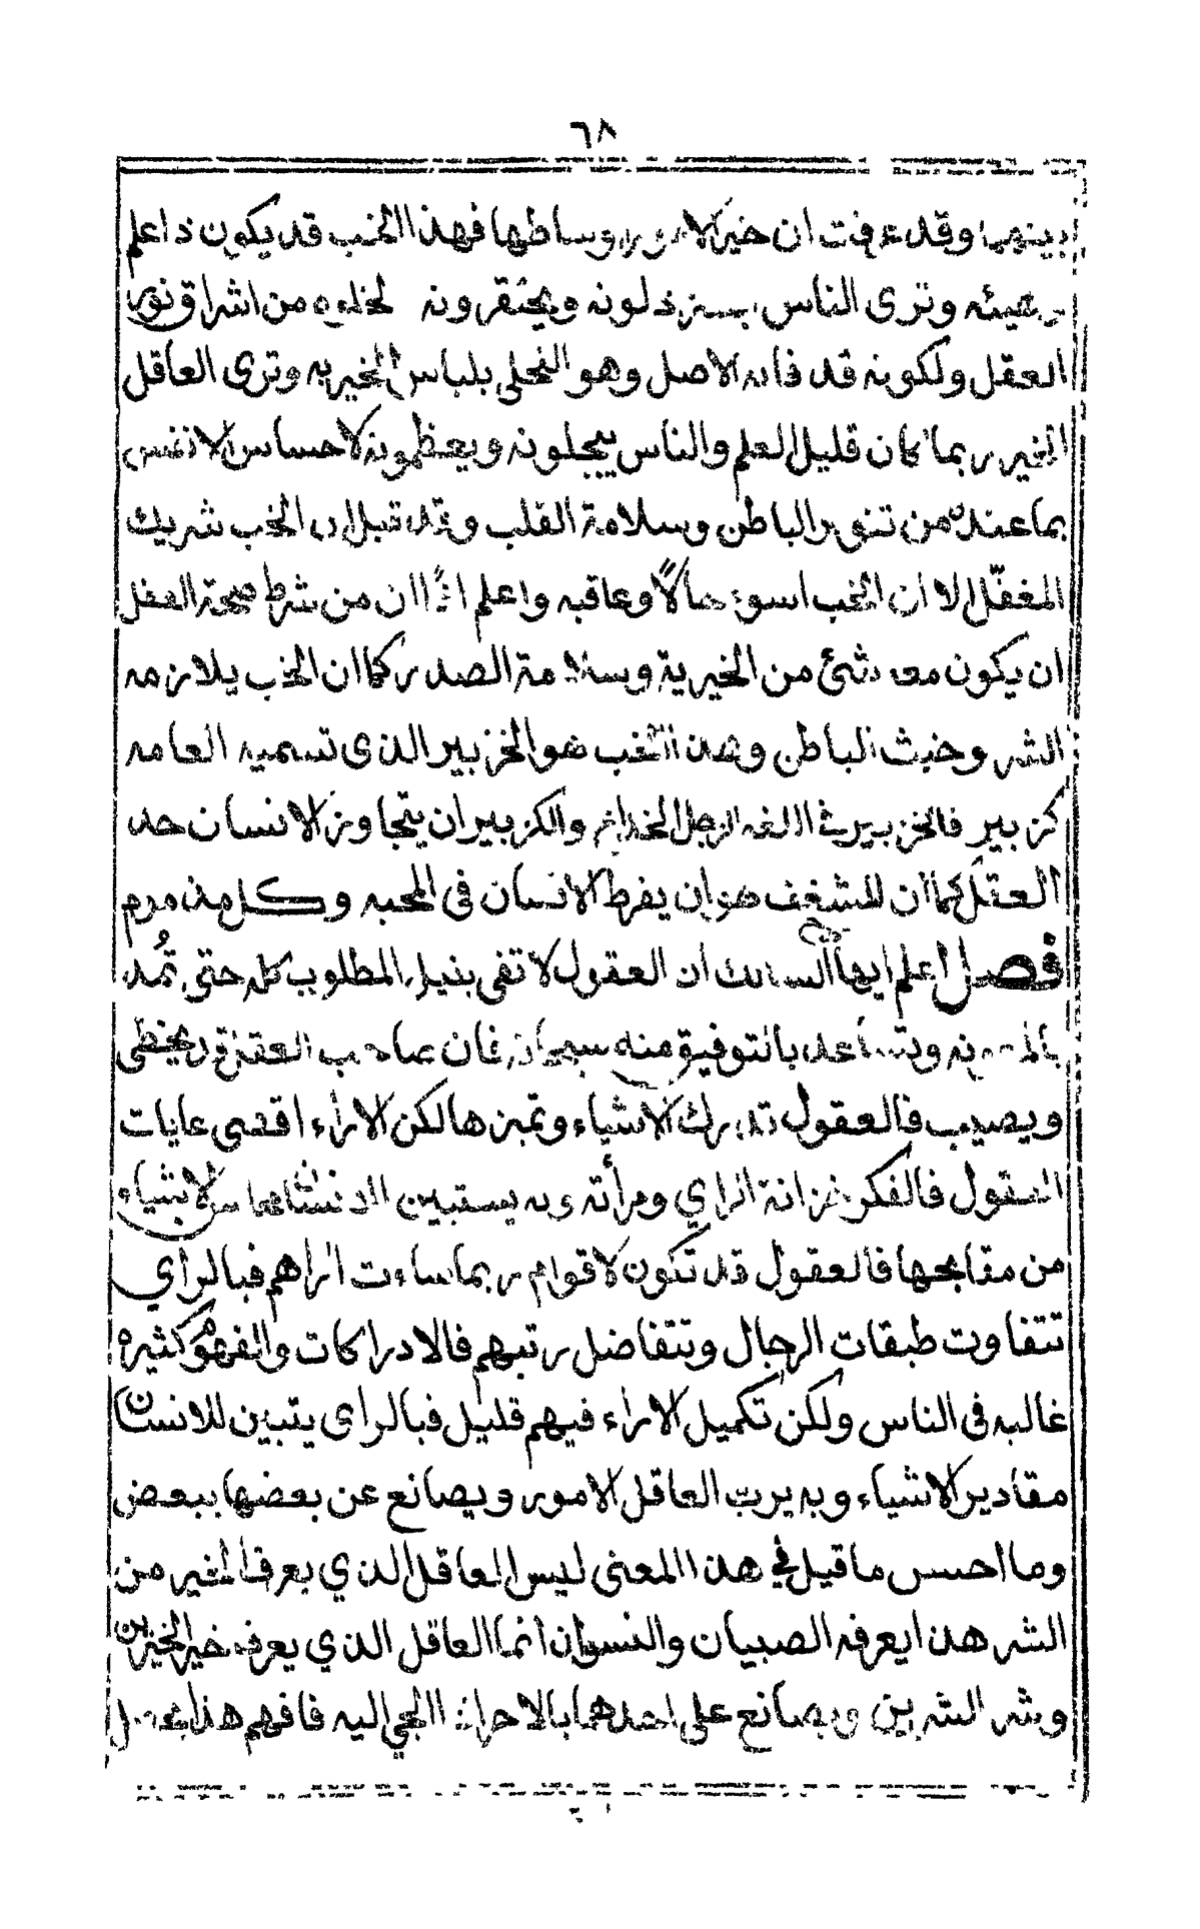 ٦٨
بينهما وقد عرفت ان خير الامور اوساطها فهذا الخب قد يكون ذا علم
وهيئه وترى الناس يسترذلونه ويحتقرونه لخلوه من اشراق نور
العقل ولكونه قد فاته الاصل وهو التحلي بلباس الخيريه وترى العاقل
الخير ربما كان قليل العلم والناس يبجلونه ويعظمونه لاحساس الانفس
بما عنده من تنوير الباطن وسلامة القلب وقد قيل ان الخب شريك
المغفّل الا ان الخب اسوء حالاً وعاقبه واعلم ان من شرط صحة العقل
ان يكون معه شئ من الخيرية وسلامة الصدر كما ان الخب يلازمه
الشر وخبث الباطن وهذا الخب هو الخزبير الذى تسميه العامه
كزبير فالخزبير في اللغه الرجل الخداع والكزبير ان يتجاوز الانسان حد
العقل كما ان الشغف هو ان يفرط الانسان فى المحبه وكل مذموم
فصل اعلم ايها السالك ان العقول لا تفى بنيل المطلوب كله حتى تُمد
بالمعونه وتساعد بالتوفيق منه سبحانه فان صاحب العقل قد يخطى
ويصيب فالعقول تدرك الاشياء وتميزها لكن الاراء اقصى غايات
العقول فالفكر خزانة الراي ومرأته وبه يستبين الانسان محاسن الاشياء
من مقابحها فالعقول قد تكون لاقوام ربما ساءت اراهم فبالراي
تتفاوت طبقات الرجال وتتفاضل رتبهم فالادراكات والفهوم كثيره
غالبه فى الناس ولكن تكميل الاراء فيهم قليل فبالراى يتبين للانسان
مقادير الاشياء وبه يرتب العاقل الامور ويصانع عن بعضها ببعض
وما احسن ما قيل في هذا المعنى ليس العاقل الذي يعرف الخير من
الشر هذا يعرفه الصبيان والنسوان انما العاقل الذي يعرف خير الخيرين
وشر الشرين ويصانع على احدهما بالاخر اذا الجي اليه فافهم هذا